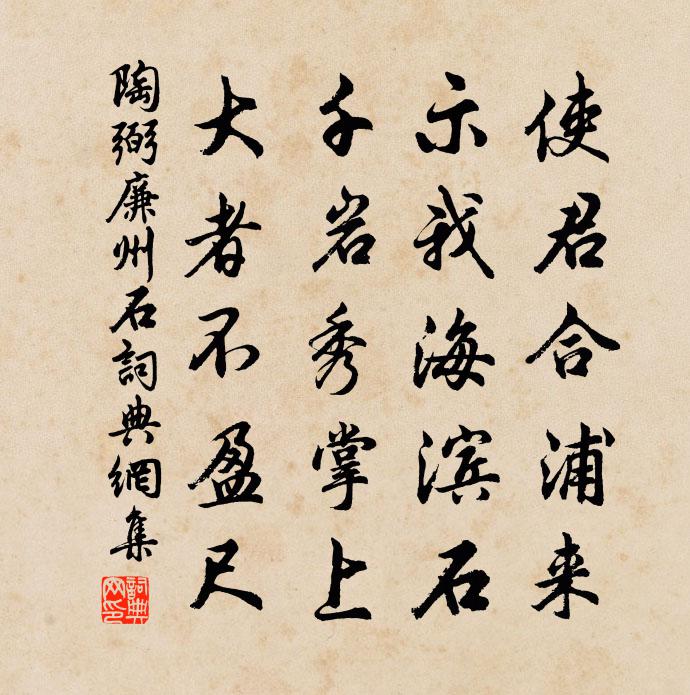 使君合浦来
示我海滨石
千岩秀掌上
大者不盈尺
陶弼廉州石詞典網集
詞典网印